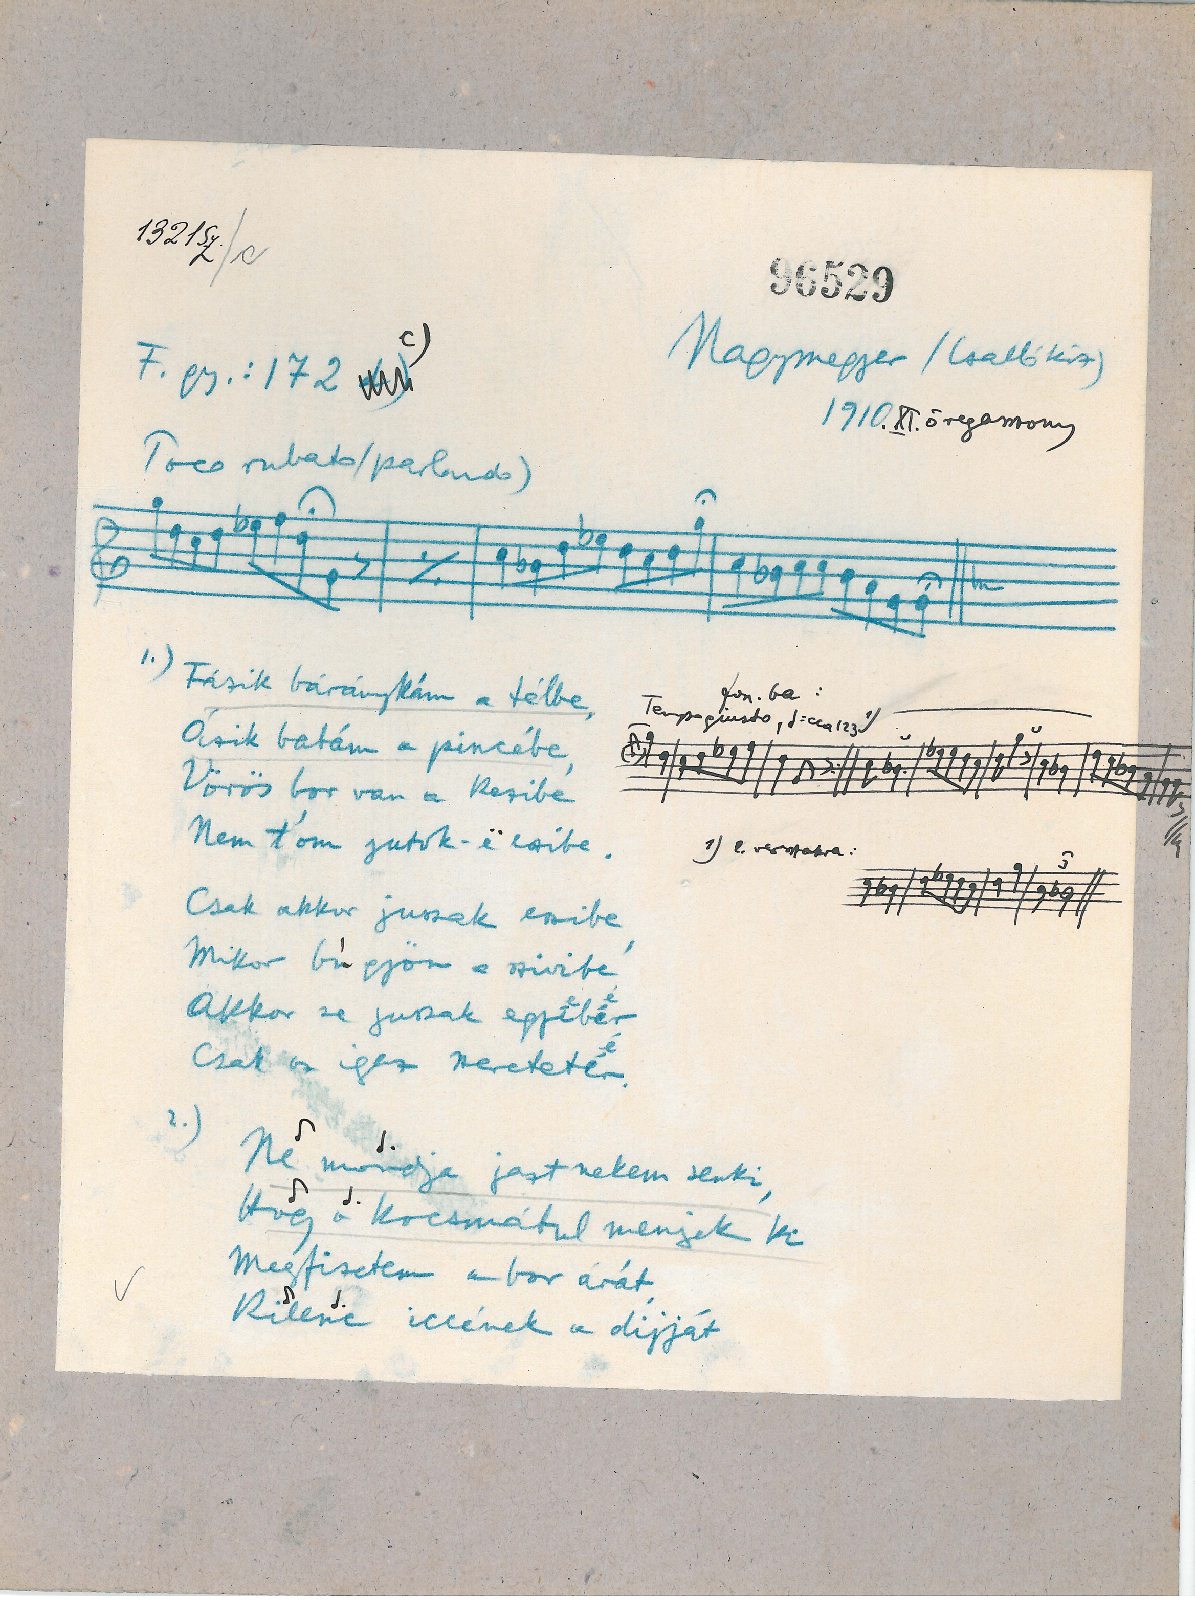 1321 Sz/c
96529
F. gy.: 172 c)
Nagymegyer /Csallóköz)
1910. XI. öregasszony
Poco rubato/parlando)
1.) Fázik báránykám a télbe,
Ázik babám a pincébe,
Vörös bor van a kezibe
Nem t'om jutok-ë eszibe.
Csak akkor juszak eszibe,
Mikor bú gyön a szivibe
Akkor se juszak egyébér
Csak az igaz szeretetér.
fon. ba:
Tempo giusto, ♩=cca 123 1)
1) 2. versszakra:
2.) Ne mondja jazt nekem senki,
Hogy a kocsmábul menjek ki
Megfizetem a bor árát,
Kilenc iccének a díjját